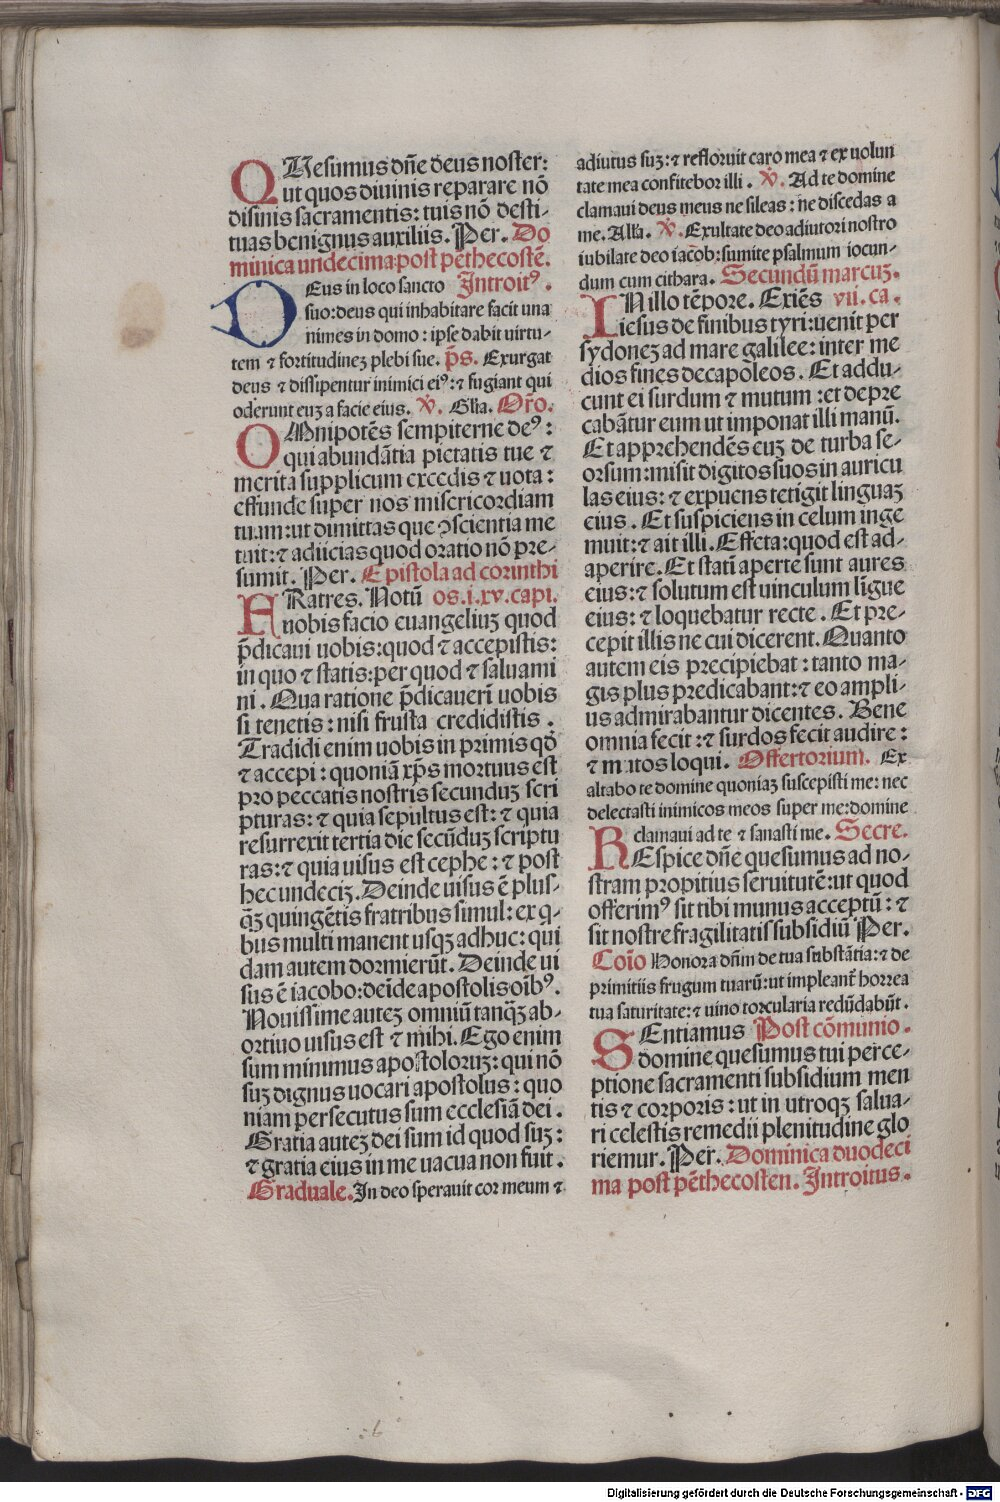 QUesumus dñe deus noster:
ut quos diuinis reparare nõ
disinis sacramentis: tuis nõ desti-
tuas benignus auxiliis. Per. Do
minica undecima post pẽthecostẽ.
DEus in loco sancto Introit⁹.
suo: deus qui inhabitare facit una
nimes in domo: ipse dabit uirtu-
tem ⁊ fortitudineꝫ plebi sue. p̃s. Exurgat
deus ⁊ dissipentur inimici ei⁹: ⁊ fugiant qui
oderunt euꝫ a facie eius. v̇. Gl'ia. Or̃o.
OMnipotẽs sempiterne de⁹:
qui abundãtia pietatis tue ⁊
merita supplicum excedis ⁊ uota:
effunde super nos misericordiam
tuam: ut dimittas que ↄscientia me
tuit: ⁊ adiicias quod oratio nõ pre-
sumit. Per. Epistola ad corinthi
FRatres. Notũ os. i. xv. capi.
uobis facio euangeliuꝫ quod
p̃dicaui uobis: quod ⁊ accepistis:
in quo ⁊ statis: per quod ⁊ saluami
ni. Qua ratione p̃dicauerĩ uobis
si tenetis: nisi frusta credidistis.
Tradidi enim uobis in primis qđ
⁊ accepi: quoniã xp̃s mortuus est
pro peccatis nostris secunduꝫ scri
pturas: ⁊ quia sepultus est: ⁊ quia
resurrexit tertia die secũduꝫ scriptu
ras: ⁊ quia uisus est cephe: ⁊ post
hec undeciꝫ. Deinde uisus ẽ plus-
q̃ꝫ quingẽtis fratribus simul: ex q-
bus multi manent usqꝫ adhuc: qui
dam autem dormierũt. Deinde ui
sus ẽ iacobo: deĩde apostolis oĩb⁹.
Nouissime auteꝫ omniũ tanq̃ꝫ ab-
ortiuo uisus est ⁊ mihi. Ego enim
sum minimus apostoloruꝫ: qui nõ
suꝫ dignus uocari apostolus: quo
niam persecutus sum ecclesiã dei.
Gratia auteꝫ dei sum id quod suꝫ:
⁊ gratia eius in me uacua non fuit.
Graduale. In deo sperauit cor meum ⁊
adiutus suꝫ: ⁊ refloruit caro mea ⁊ ex uolun
tate mea confitebor illi. v̇. Ad te domine
clamaui deus meus ne sileas: ne discedas a
me. All'a. v̇. Exultate deo adiutori nostro
iubilate deo iacob: sumite psalmum iocun-
dum cum cithara. Secundũ marcuꝫ.
IN illo tẽpore. Exiẽs vii. ca.
iesus de finibus tyri: uenit per
sydoneꝫ ad mare galilee: inter me
dios fines decapoleos. Et addu-
cunt ei surdum ⁊ mutum: et depre
cabãtur eum ut imponat illi manũ.
Et apprehendẽs euꝫ de turba se-
orsum: misit digitos suos in auricu
las eius: ⁊ expuens tetigit linguaꝫ
eius. Et suspiciens in celum inge
muit: ⁊ ait illi. Effeta: quod est ad-
aperire. Et statĩ aperte sunt aures
eius: ⁊ solutum est uinculum lĩgue
eius: ⁊ loquebatur recte. Et pre-
cepit illis ne cui dicerent. Quanto
autem eis precipiebat: tanto ma-
gis plus predicabant: ⁊ eo ampli-
us admirabantur dicentes. Bene
omnia fecit: ⁊ surdos fecit audire:
⁊ mutos loqui. Offertorium. Ex
altabo te domine quoniaꝫ suscepisti me: nec
delectasti inimicos meos super me: domine
clamaui ad te ⁊ sanasti me. Secre.
REspice dñe quesumus ad no-
stram propitius seruitutẽ: ut quod
offerim⁹ sit tibi munus acceptũ: ⁊
sit nostre fragilitatis subsidiũ Per.
Coĩo Honora dñm de tua substãtia: ⁊ de
primitiis frugum tuarũ: ut impleant̃ horrea
tua saturitate: ⁊ uino torcularia redũdabũt.
SEntiamus Post cõmunio.
domine quesumus tui perce-
ptione sacramenti subsidium men
tis ⁊ corporis: ut in utroqꝫ salua-
ri celestis remedii plenitudine glo
riemur. Per. Dominica duodeci
ma post pẽthecosten. Introitus.
6
Digitalisierung gefördert durch die Deutsche Forschungsgemeinschaft - DFG